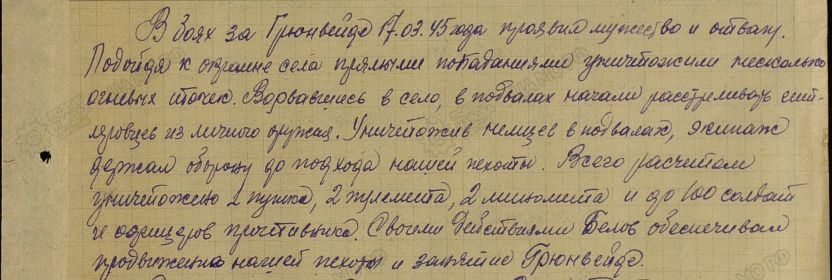 В боях за Грюнвейде 17.03.45 года проявил мужество и отвагу.
Подойдя к окраине села прямыми попаданиями уничтожили несколько
огневых точек. Ворвавшись в село, в подвалах начали расстреливать гит-
леровцев из личного оружия. Уничтожив немцев в подвалах, экипаж
держал оборону до подхода нашей пехоты. Всего расчетом
уничтожено 2 пушки, 2 пулемета, 2 миномета и до 100 солдат
и офицеров противника. Своими действиями Белов обеспечивал
продвижение нашей пехоты и занятие Грюнвейде.